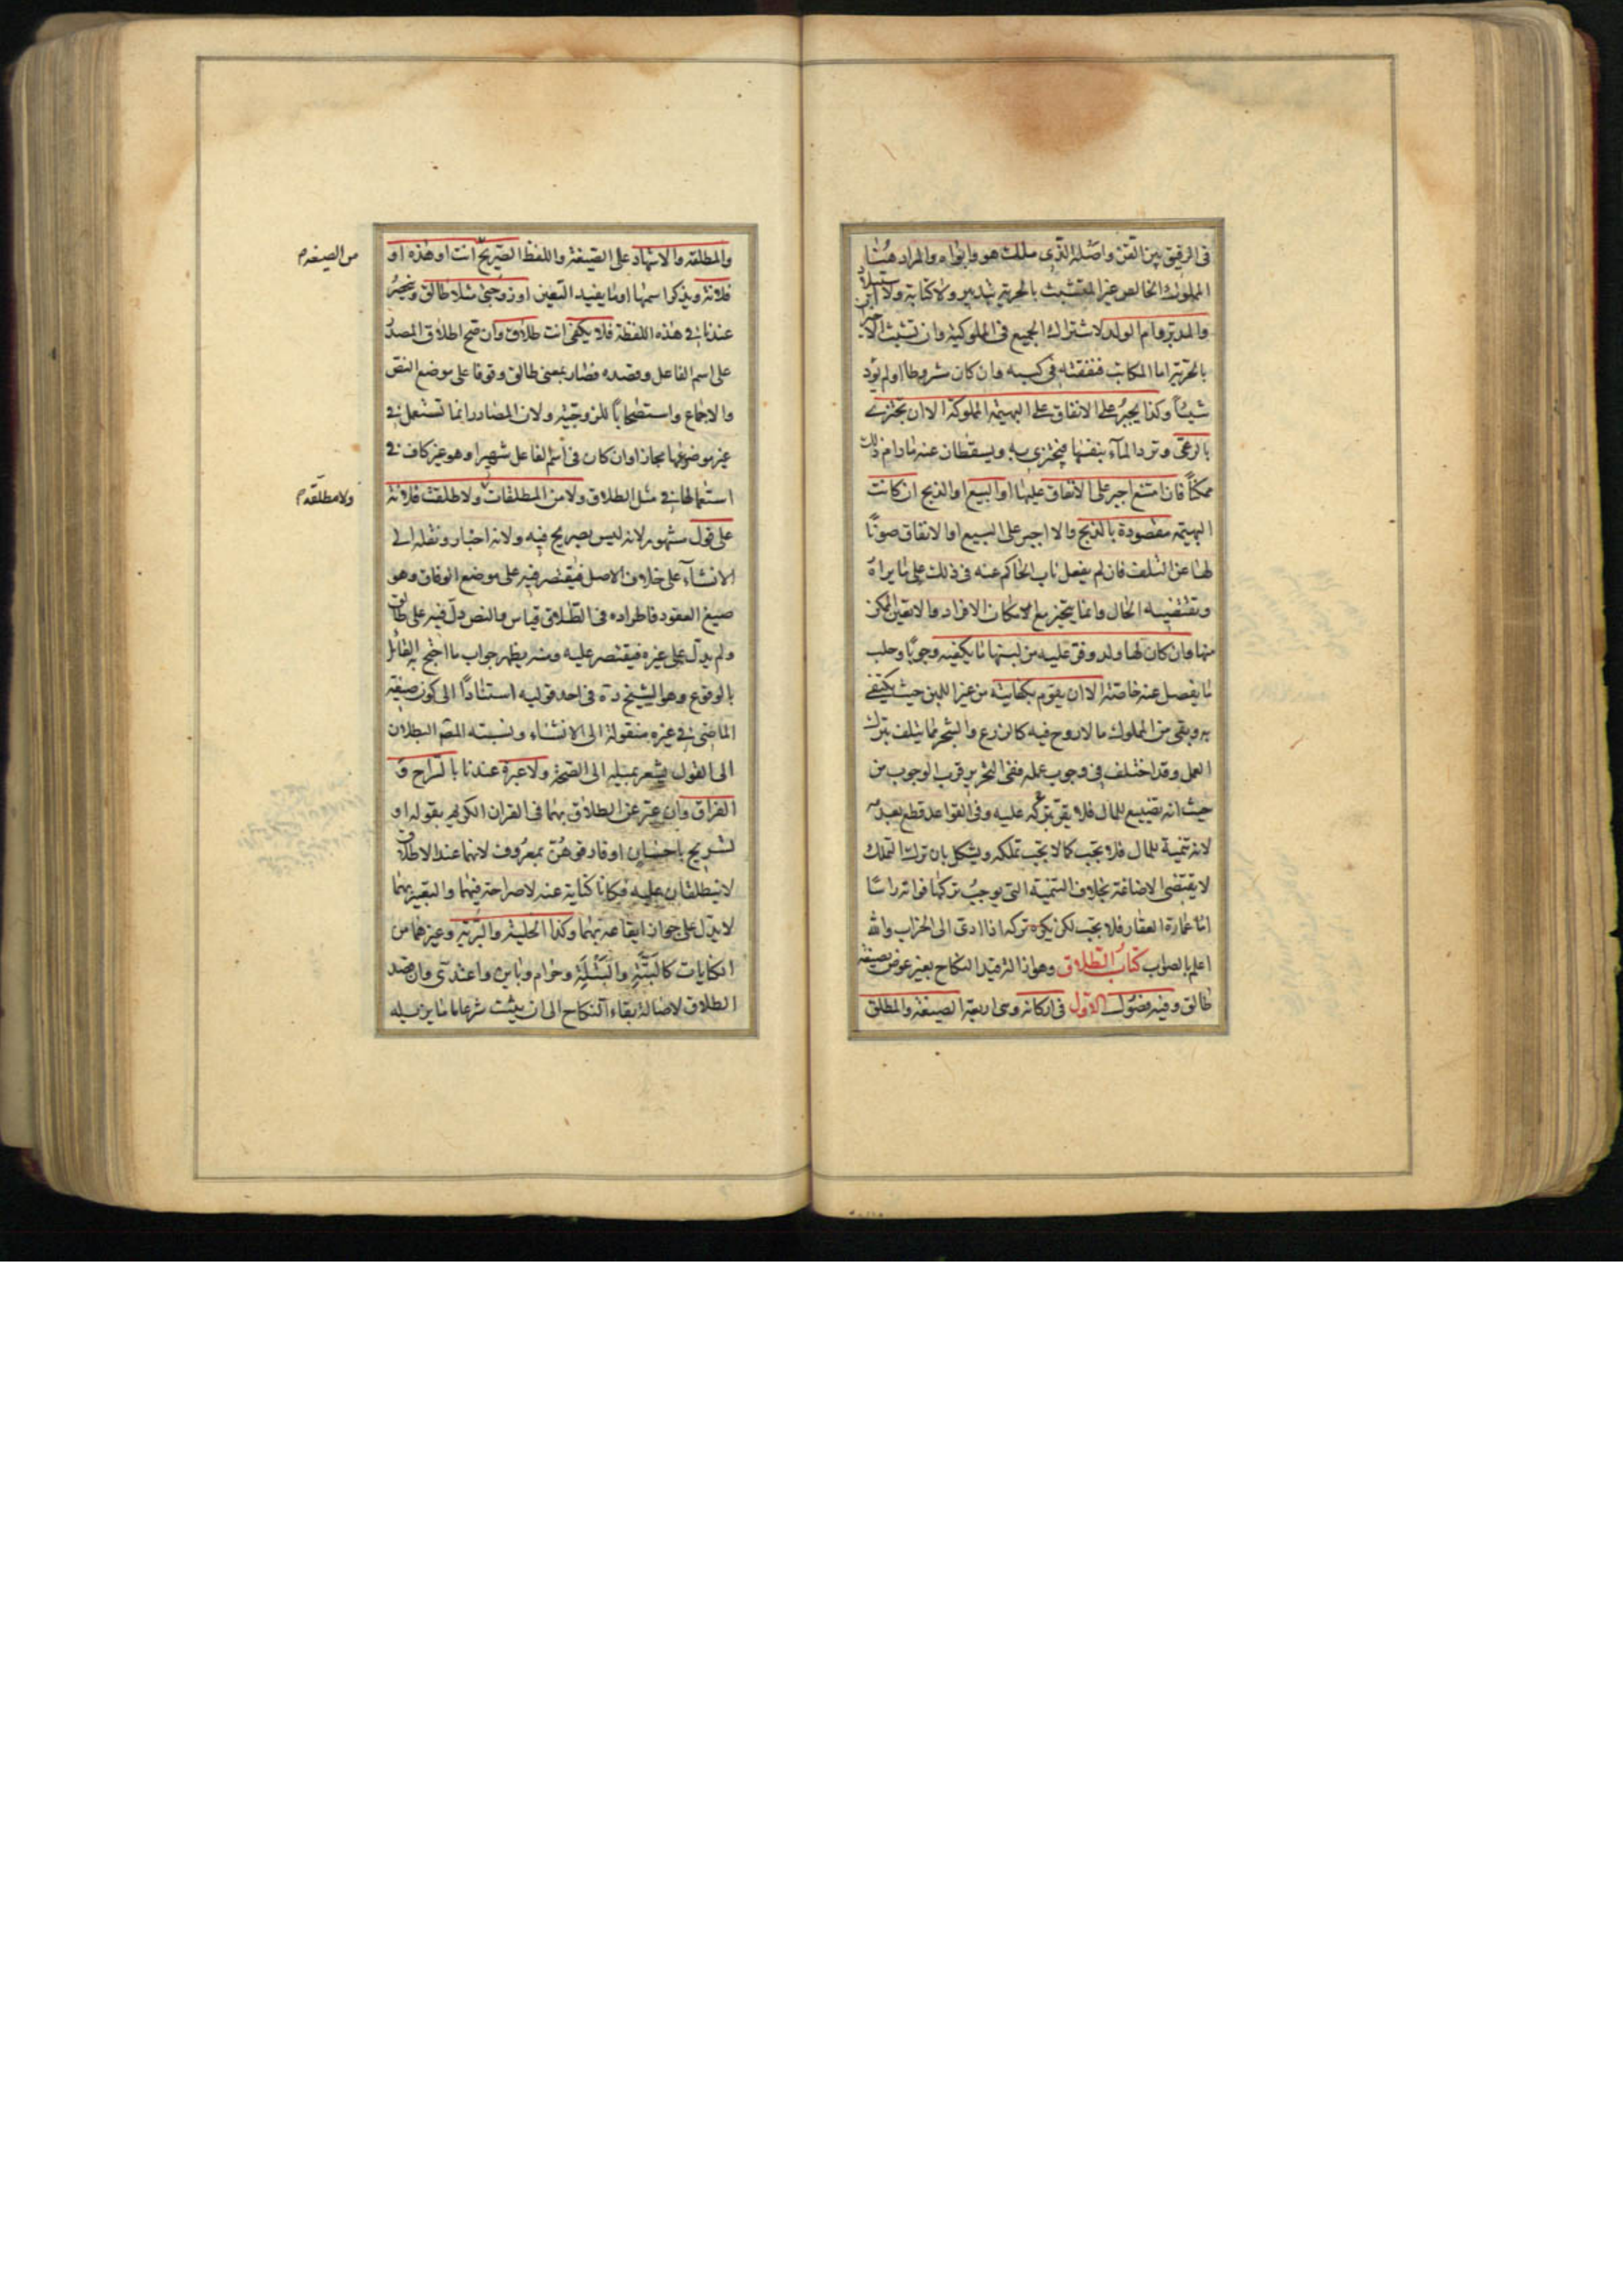 فى الرقيق بين القن واصله الذى ملك هو وابواه والمراد هنا
المملوك الخالص غير المتشبث بالحرية بتدبير ولا كتابة ولا استيلاد
والمدبر وام الولد لاشتراك الجميع فى المملوكية وان تشبث الاخير
بالحرية اما المكاتب فنفقته فى كسبه وان كان مشروطا او لم يؤد
شيئاً وكذا يجبر على الانفاق على البهيمة المملوكة الا ان تجتزى
بالرعى وترد الماء بنفسها فيجتزى به ويسقطان عنه مادام ذلك
ممكناً فان امتنع اجبر على الانفاق عليها او البيع او الذبح ان كانت
البهيمة مقصودة بالذبح والا اجبر على البيع او الانفاق صوناً
لها عن التلف فان لم يفعل ناب الحاكم عنه فى ذلك على ما يراه
وتقتضيه الحال وانما يتخير مع امكان الافراد والا تعين الممكن
منها وان كان لها ولد وفر عليه من لبنها ما يكفيه وجوباً وحلب
ما يفضل عنه خاصة الا ان يقوم بكفايته من غير اللبن حيث يكتفى
به وبقى من المملوك ما لا روح فيه كالزرع والشجر مما يتلف بترك
العمل وقد اختلف فى وجوب عمله ففى التحرير قرب الوجوب من
حيث انه تضييع للمال فلا يقر على تركه عليه وفى القواعد قطع بعدمه
لانه تنمية للمال فلا تجب كما لا يجب تملكه ويشكل بان ترك التملك
لا يقتضى الاضاعة بخلاف التنمية التى يوجب تركها فواته راسا
اما عمارة العقار فلا تجب لكن يكره تركه اذا ادى الى الخراب والله
اعلم بالصواب كتاب الطلاق وهو ازالة قيد النكاح بغير عوض بصيغة
طالق وفيه فصول الاول فى اركانه وهى اربعة الصيغة والمطلق
والمطلقة والاشهاد على الصيغة واللفظ الصريح انت او هذه او
من الصيغة
فلانة ويذكر اسمها او ما يفيد التعيين او زوجتى مثلا طالق وينحصر
عندنا فى هذه اللفظة فلا يكفى انت طلاق وان صح اطلاق المصدر
على اسم الفاعل وقصده فصار بمعنى طالق وقوفا على موضع النص
والاجماع واستصحاباً للزوجية ولان المصادر انما تستعمل فى
غير موضوعها مجازا وان كان فى اسم الفاعل شهيرا وهو غير كاف فى
استعمالها فى مثل الطلاق ولا من المطلقات ولا طلقت فلانة
ولا مطلقة
على قول مشهور لانه ليس بصريح فيه ولانه اخبار ونقله الى
الانشاء على خلاف الاصل فيقتصر فيه على موضع الوفاق وهو
صيغ العقود فاطراده فى الطلاق قياس والنص دل فيه على طالق
ولم يدل على غيره فيقتصر عليه ومنه يظهر جواب ما احتج به القائل
بالوقوع وهو الشيخ ره فى احد قوليه استناداً الى كون صيغة
الماضى فى غيره منقولة الى الانشاء ونسبته المصنف البطلان
الى القول يشعر بميله الى الصحة ولا عبرة عندنا بالسراح و
الفراق وان عبر عن الطلاق بهما فى القران الكريم بقوله او
تسريح باحسان او فارقوهن بمعروف لانهما عند الاطلاق
لا ينطلقان عليه فكانا كناية عنه لا صراحة فيهما والتعبير بهما
لا يدل على جواز ايقاعه بهما وكذا الخلية والبرية وغيرهما من
الكنايات كالبتة والبتلة وحرام وباين واعتدى وان قصد
الطلاق لاصالة بقاء النكاح الى ان يثبت شرعا ما يزيله